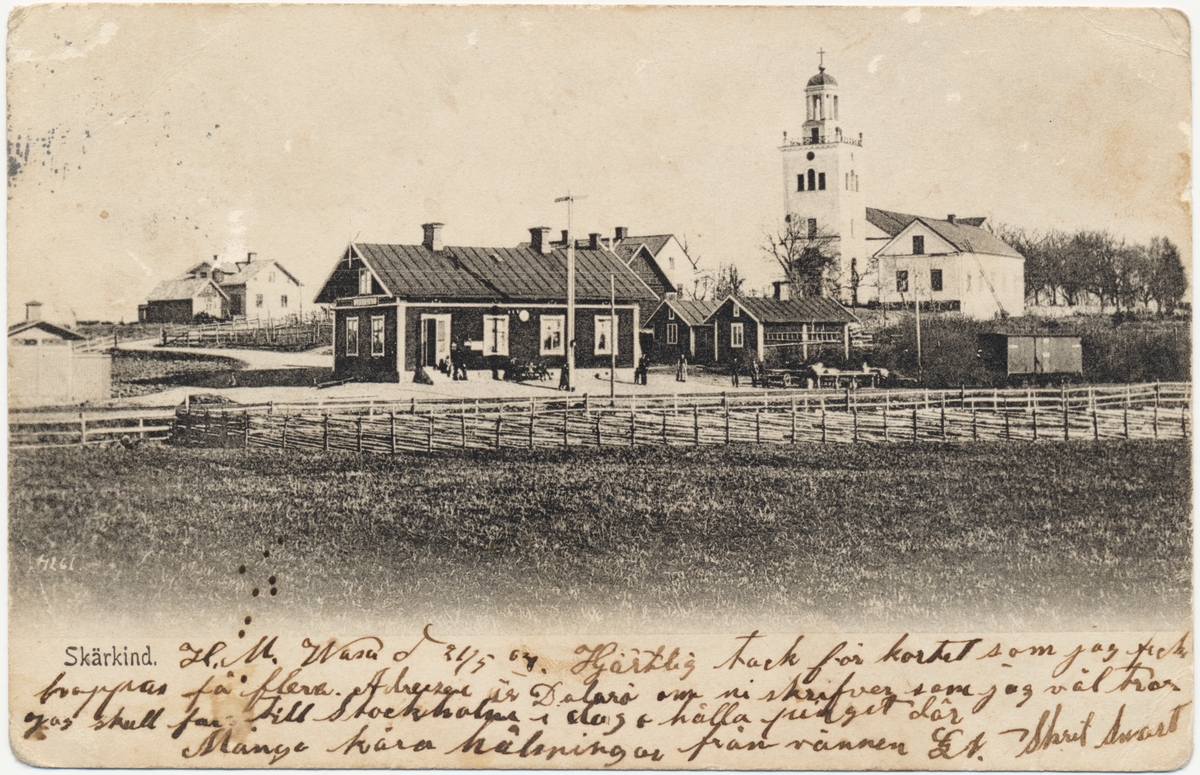 4261
Skärkind.
H. M. Wasa d 31/5 04. Hjärtlig tack för kortet som jag fick
hoppas få flera. Adressen är Dalarö om ni skrifver som jag väl tror
jag skall far till Stockholm i dag o hålla
Många kära hälsningar från vännen Skrif Snart